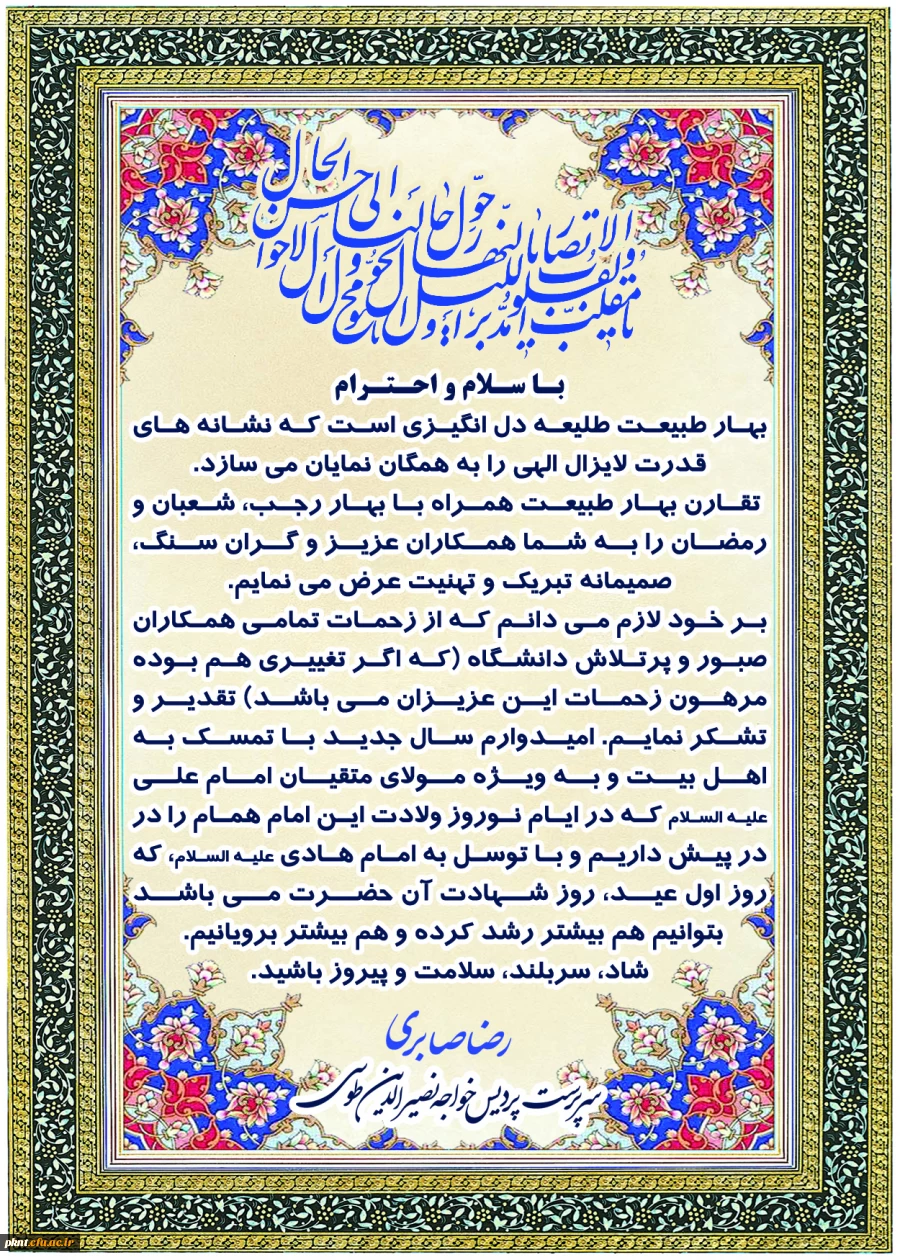 یا مقلب القلوب والابصار
یا مدبر اللیل والنهار
یا محول الحول والاحوال
حوّل حالنا الی احسن الحال
با سلام و احترام
بهار طبیعت طلیعه دل انگیزی است که نشانه های
قدرت لایزال الهی را به همگان نمایان می سازد.
تقارن بهار طبیعت همراه با بهار رجب، شعبان و
رمضان را به شما همکاران عزیز و گران سنگ،
صمیمانه تبریک و تهنیت عرض می نمایم.
بر خود لازم می دانم که از زحمات تمامی همکاران
صبور و پرتلاش دانشگاه (که اگر تغییری هم بوده
مرهون زحمات این عزیزان می باشد) تقدیر و
تشکر نمایم. امیدوارم سال جدید با تمسک به
اهل بیت و به ویژه مولای متقیان امام علی
علیه السلام که در ایام نوروز ولادت این امام همام را در
در پیش داریم و با توسل به امام هادی علیه السلام، که
روز اول عید، روز شهادت آن حضرت می باشد
بتوانیم هم بیشتر رشد کرده و هم بیشتر برویانیم.
شاد، سربلند، سلامت و پیروز باشید.
رضا صابری
سرپرست پردیس خواجه نصیرالدین طوسی
pknt.cfu.ac.ir